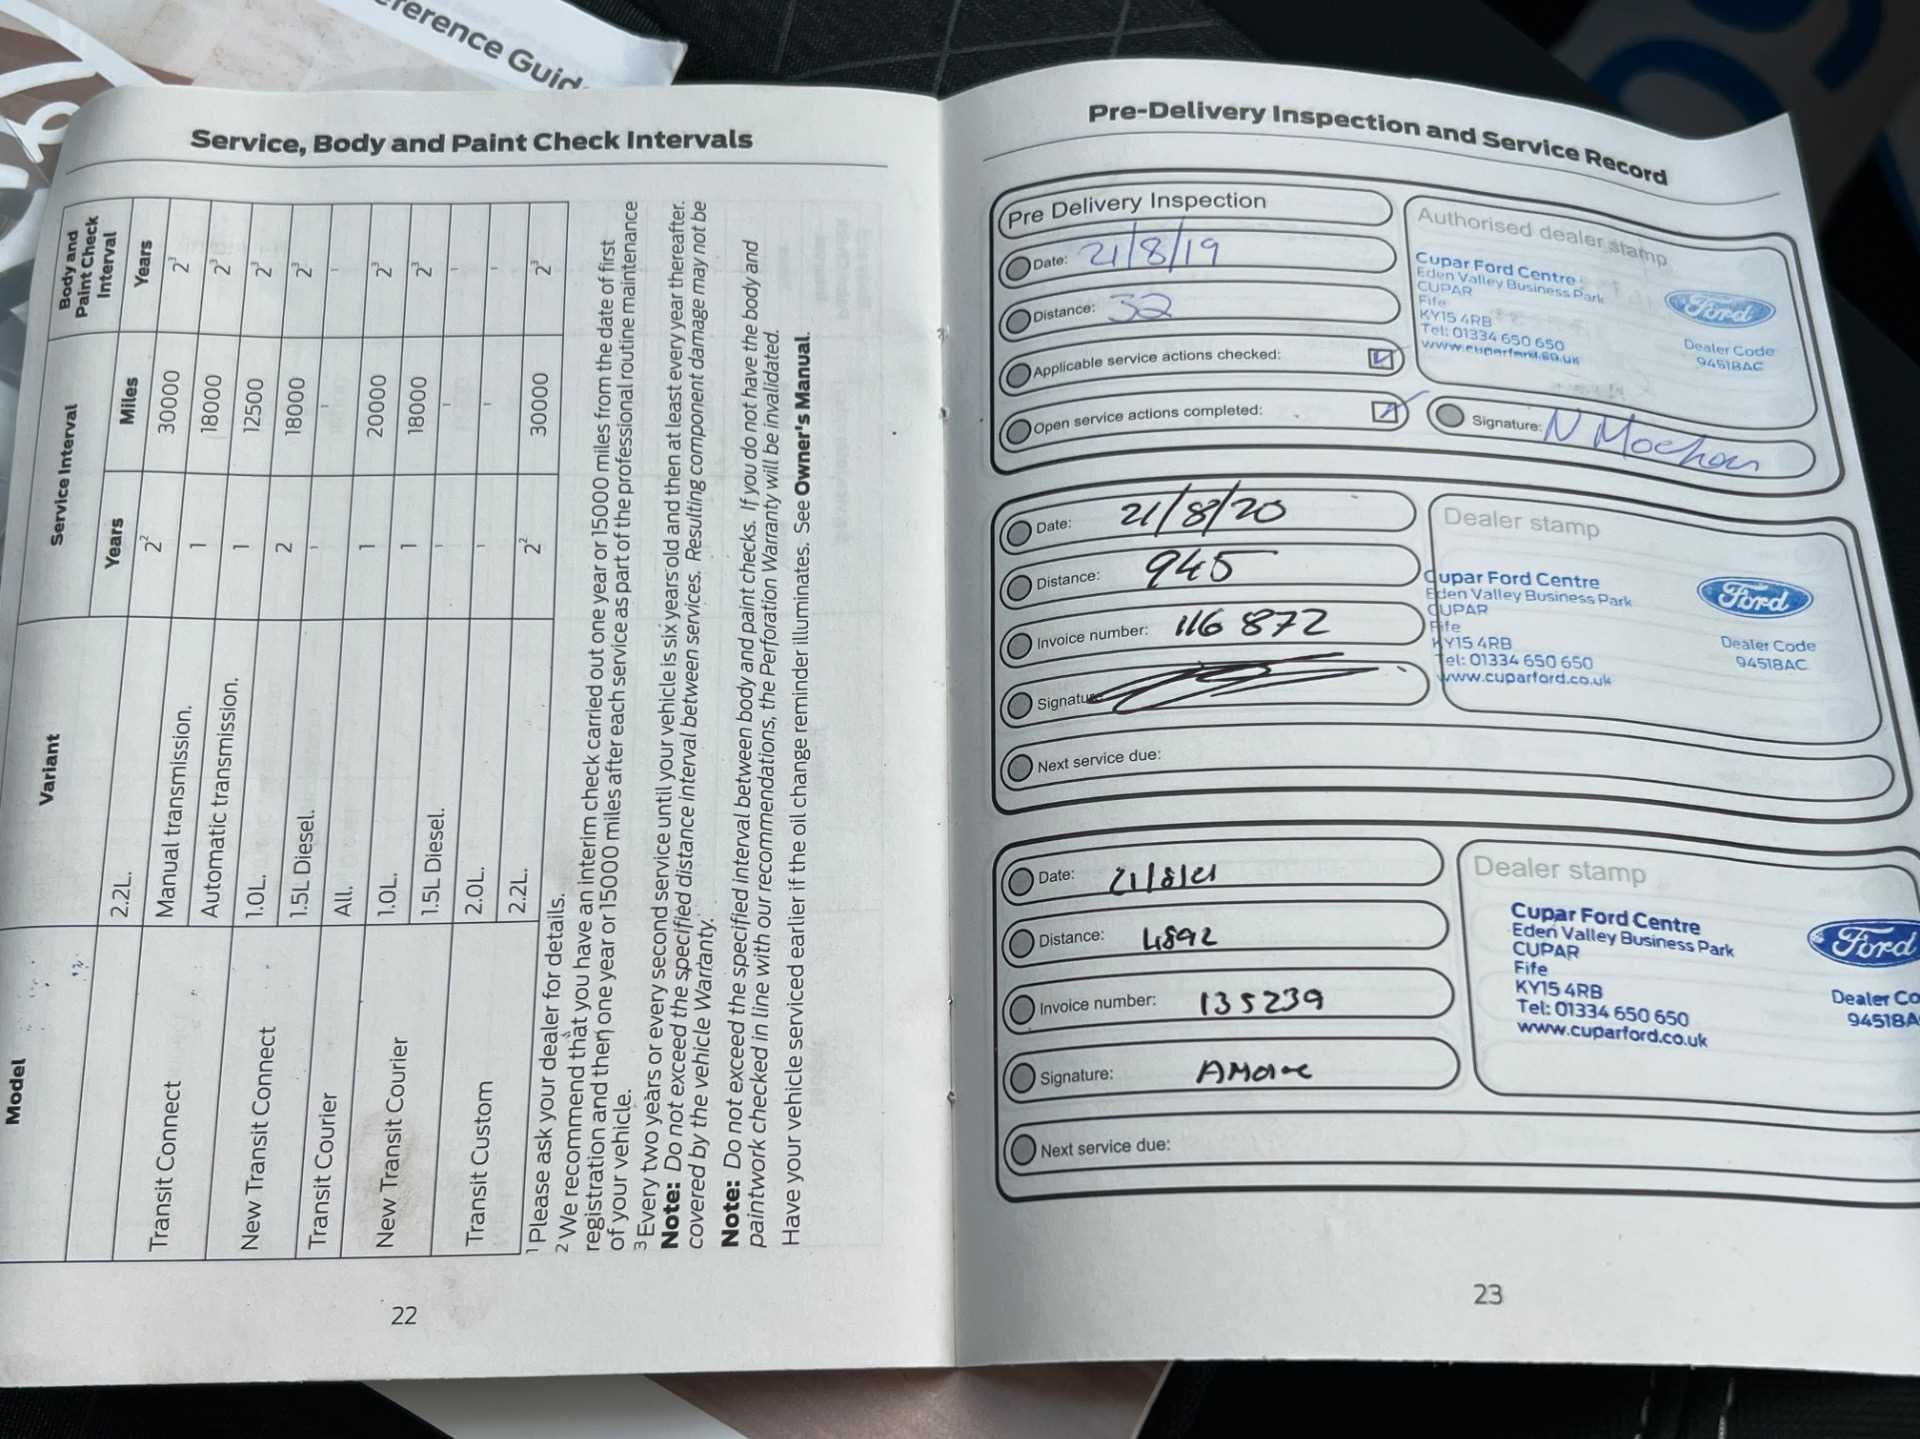 ference Guid
Service, Body and Paint Check Intervals
Model Variant Service Interval Body and Paint Check Interval
Years Miles Years
2.2L. 2² 30000 2³
Transit Connect Manual transmission. 1 18000 2³
Automatic transmission. 1 12500 2³
New Transit Connect 1.0L. 2 18000 2³
1.5L Diesel. - - -
Transit Courier All. 1 20000 2³
New Transit Courier 1.0L. 1 18000 2³
1.5L Diesel. - - -
Transit Custom 2.0L. - - -
2.2L. 2² 30000 2³
1 Please ask your dealer for details.
2 We recommend that you have an interim check carried out one year or 15000 miles from the date of first
registration and then one year or 15000 miles after each service as part of the professional routine maintenance
of your vehicle.
3 Every two years or every second service until your vehicle is six years old and then at least every year thereafter.
Note: Do not exceed the specified distance interval between services. Resulting component damage may not be
covered by the vehicle Warranty.
Note: Do not exceed the specified interval between body and paint checks. If you do not have the body and
paintwork checked in line with our recommendations, the Perforation Warranty will be invalidated.
Have your vehicle serviced earlier if the oil change reminder illuminates. See Owner's Manual.
22
Pre-Delivery Inspection and Service Record
Pre Delivery Inspection
Date: 21/8/19
Distance: 32
Applicable service actions checked:
Open service actions completed:
Authorised dealer stamp
Cupar Ford Centre
Eden Valley Business Park
CUPAR
Fife
KY15 4RB
Tel: 01334 650 650
www.cuparford.co.uk
Ford
Dealer Code
94518AC
Signature: N Mochan
Date: 21/8/20
Distance: 945
Invoice number: 116872
Signature
Next service due:
Dealer stamp
Cupar Ford Centre
Eden Valley Business Park
CUPAR
Fife
KY15 4RB
Tel: 01334 650 650
www.cuparford.co.uk
Ford
Dealer Code
94518AC
Date: 21/8/21
Distance: 4892
Invoice number: 135239
Signature:
Next service due:
Dealer stamp
Cupar Ford Centre
Eden Valley Business Park
CUPAR
Fife
KY15 4RB
Tel: 01334 650 650
www.cuparford.co.uk
Ford
Dealer Co
94518A
23